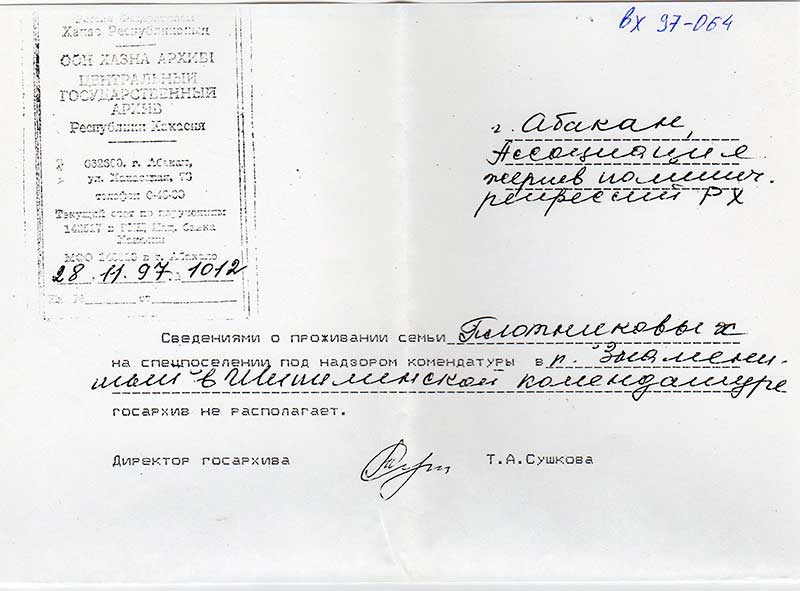 вх 97-064
Хакас Республиказы
ӦӦН ХАЗНА АРХИВІ
ЦЕНТРАЛЬНЫЙ
ГОСУДАРСТВЕННЫЙ
АРХИВ
Республики Хакасия
г. Абакан,
ул. Хакасская,
телефон
Текущий счет по поручениям
в г. Абакане
28.11.97 1012
На № от
г. Абакан,
Ассоциация
жертв политич.
репрессий РХ
Сведениями о проживании семьи Плотниковых
на спецпоселении под надзором комендатуры в р. Знамени-
тый в Шипилинской комендатуре
госархив не располагает.
Директор госархива Т.А.Сушкова